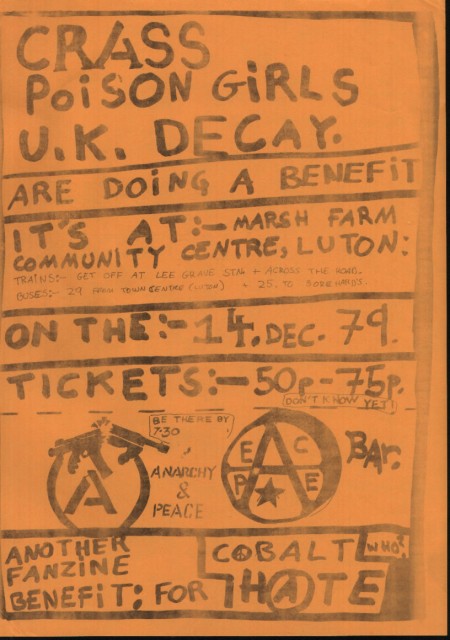 CRASS
POISON GiRLS
U.K. DECAY.
ARE DOiNG A BENEFiT
IT'S AT:- MARSH FARM
COMMUNITY CENTRE, LUTON:
TRAINS:- GET OFF AT LEE GRAVE STAN + ACROSS THE ROAD.
BUSES:- 29 FROM TOWN CENTRE (LUTON) & 25. TO
ON THE:- 14. DEC. 79.
TICKETS:- 50p - 75p.
(DON'T KNOW YET!)
BE THERE BY
7·30
A
ANARCHY
&
PEACE
PEACE
BAR.
ANOTHER
FANZINE
BENEFiT: FOR
COBALT
HATE
WHO?